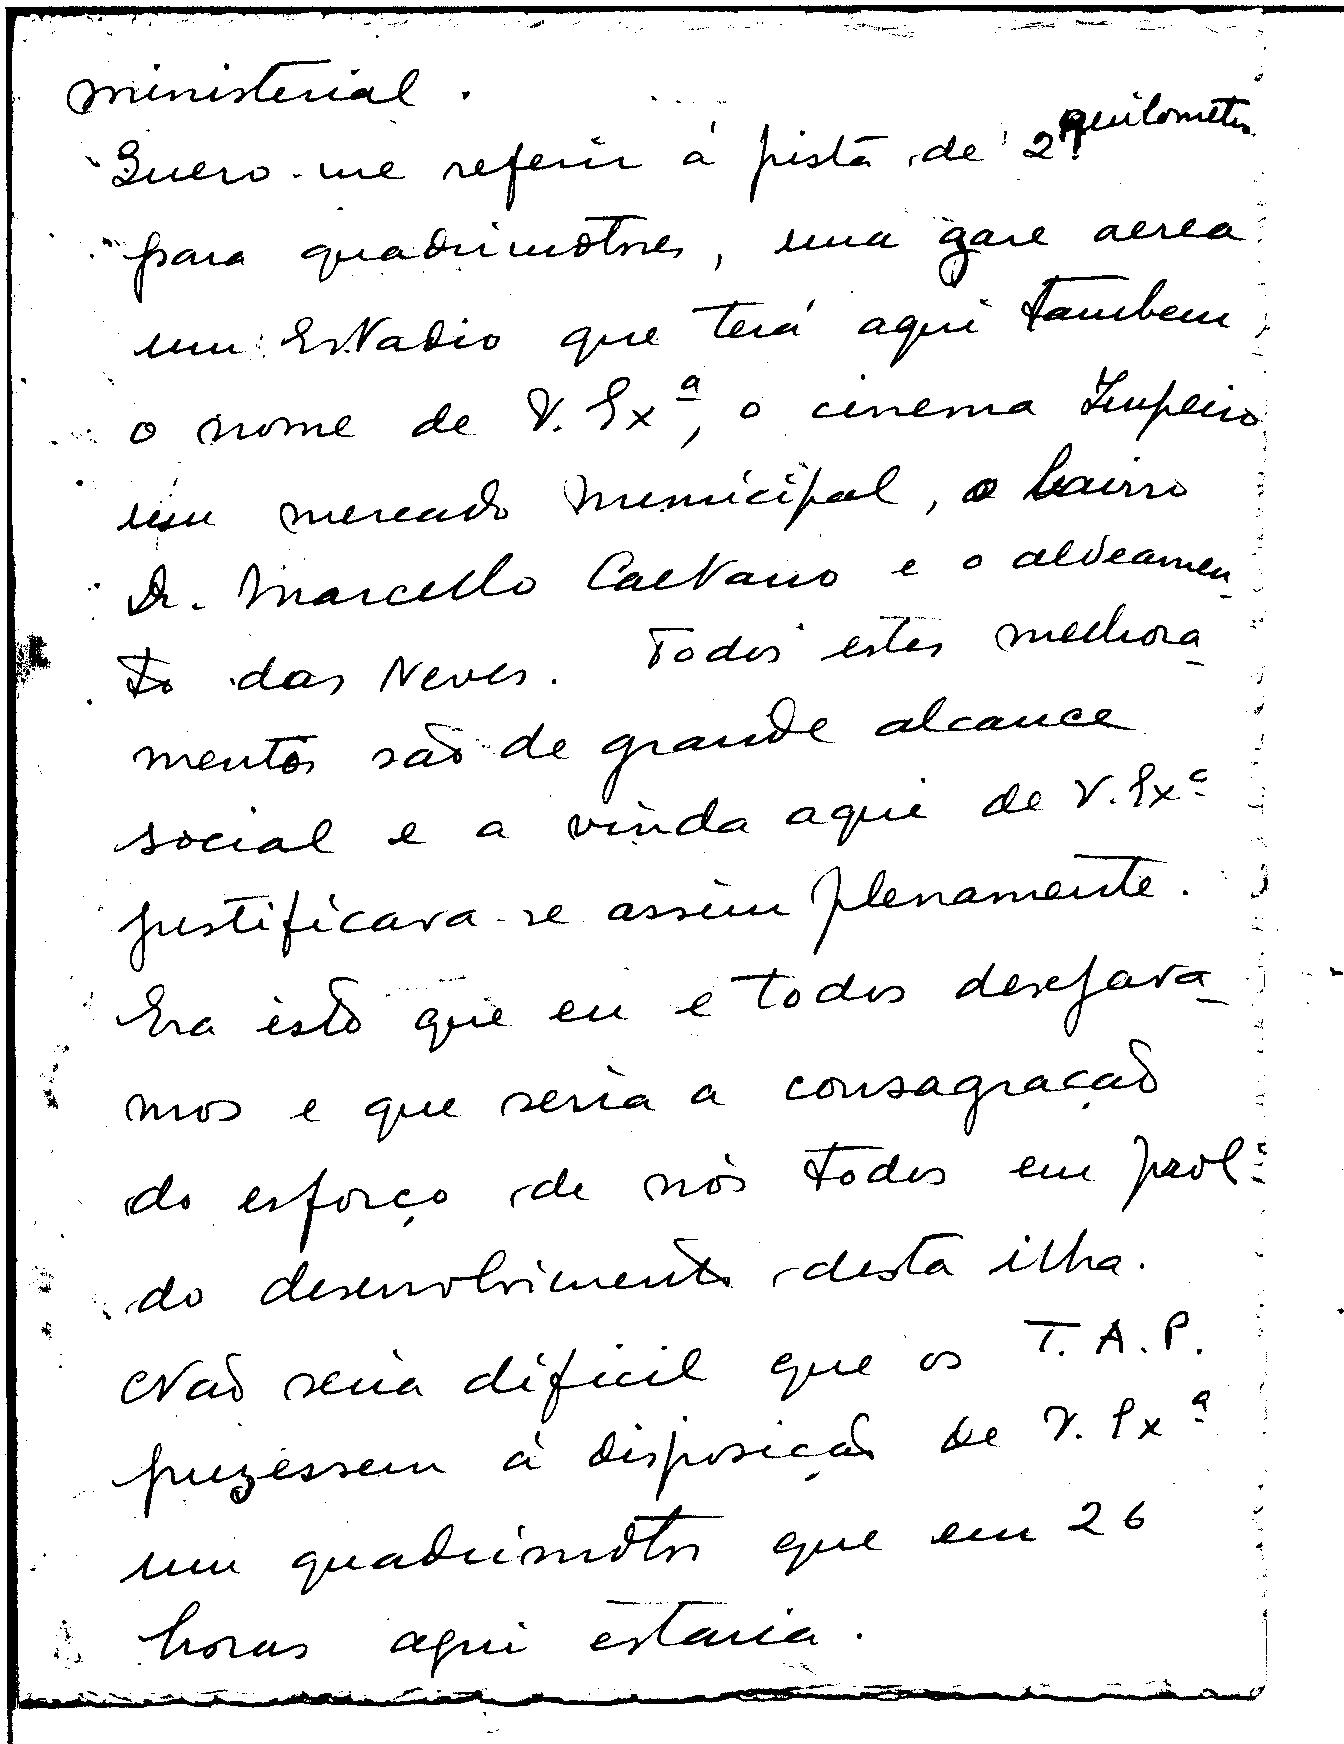 ministerial.
Quero-me referir á pista de 2 quilometros
para quadrimotores, uma gare aerea
um Estadio que terá aqui tambem
o nome de V. Exª, o cinema Imperio
um mercado Municipal, o bairro
Dr. Marcello Caetano e o aldeamen_
to das Neves. Todos estes melhora_
mentos são de grande alcance
social e a vinda aqui de V. Exª
justificava-se assim plenamente.
Era isto que eu e todos desejava_
mos e que seria a consagração
do esforço de nós todos em prol
do desenvolvimento desta ilha.
Não seria dificil que os T.A.P.
puzessem á disposição de V. Exª
um quadrimotor que em 26
horas aqui estaria.